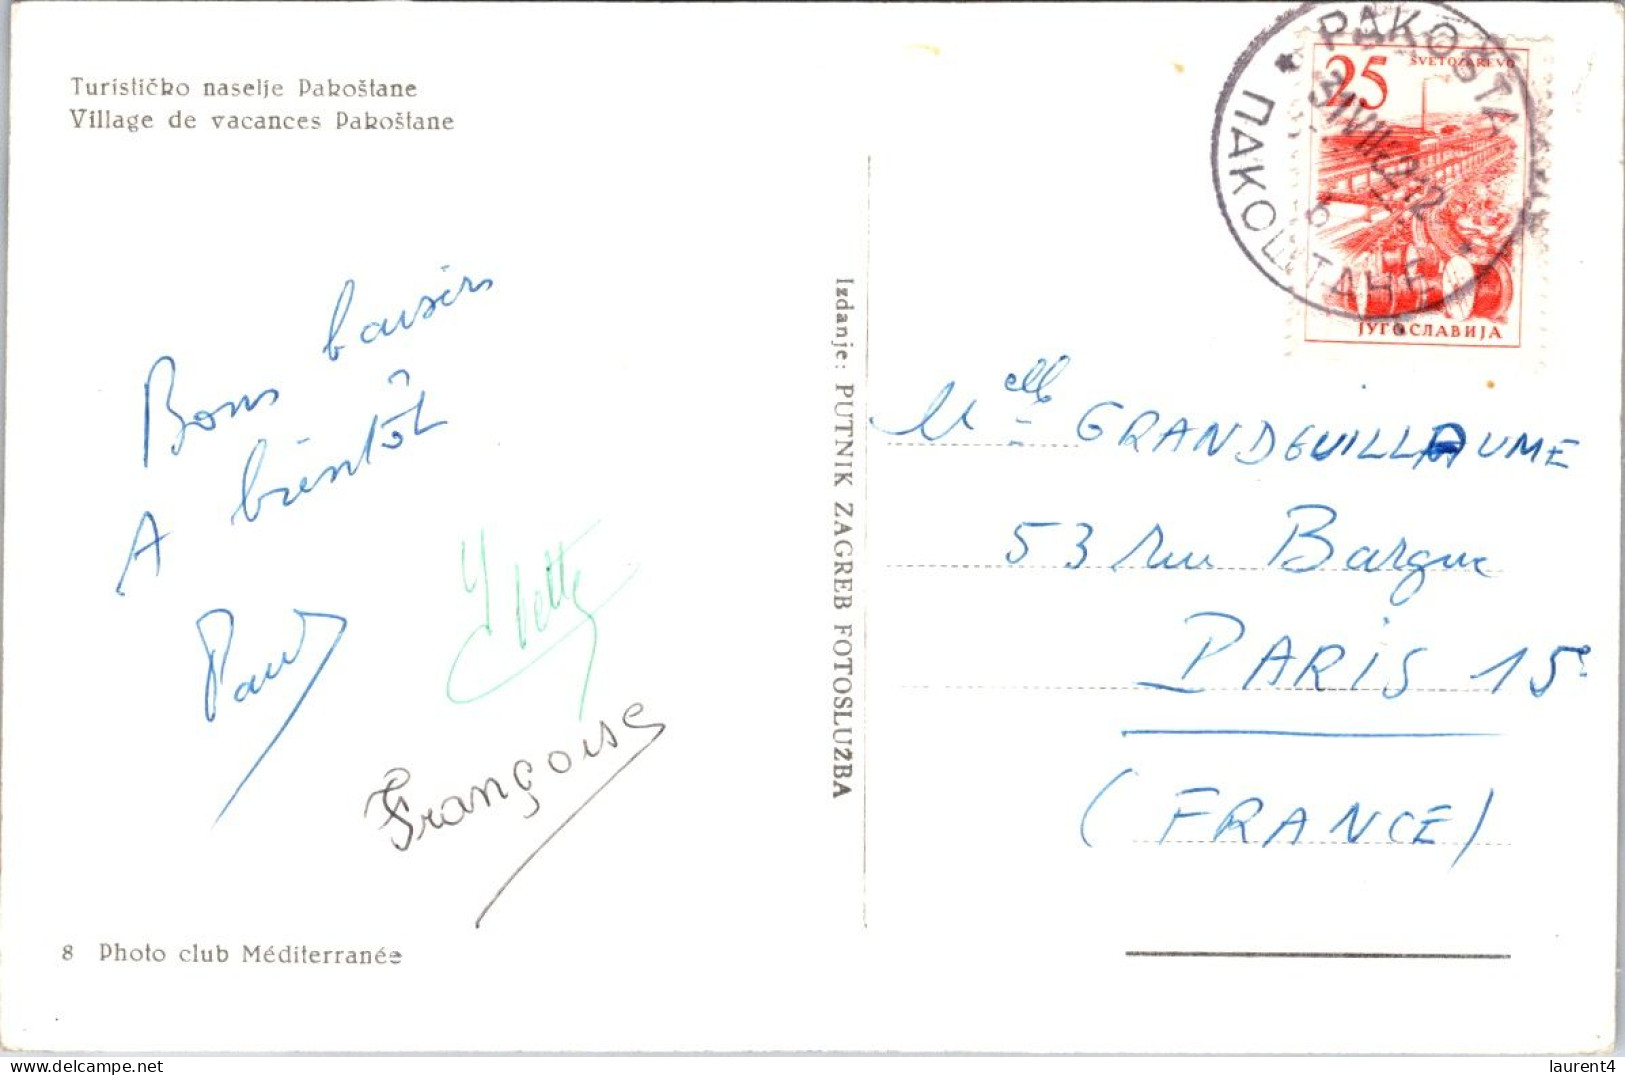 Turističko naselje Pakoštane
Village de vacances Pakoštane
Bons baisers
A bientôt
Paul
Yvette
Françoise
8 Photo club Méditerranée
Izdanje: PUTNIK ZAGREB FOTOSLUŽBA
PAKOŠTA
ПАКОШТАНЕ
25
SVETOZAREVO
ЈУГОСЛАВИЈА
Melle GRANDGUILLAUME
53 rue Bargue
PARIS 15e
(FRANCE)
laurent4